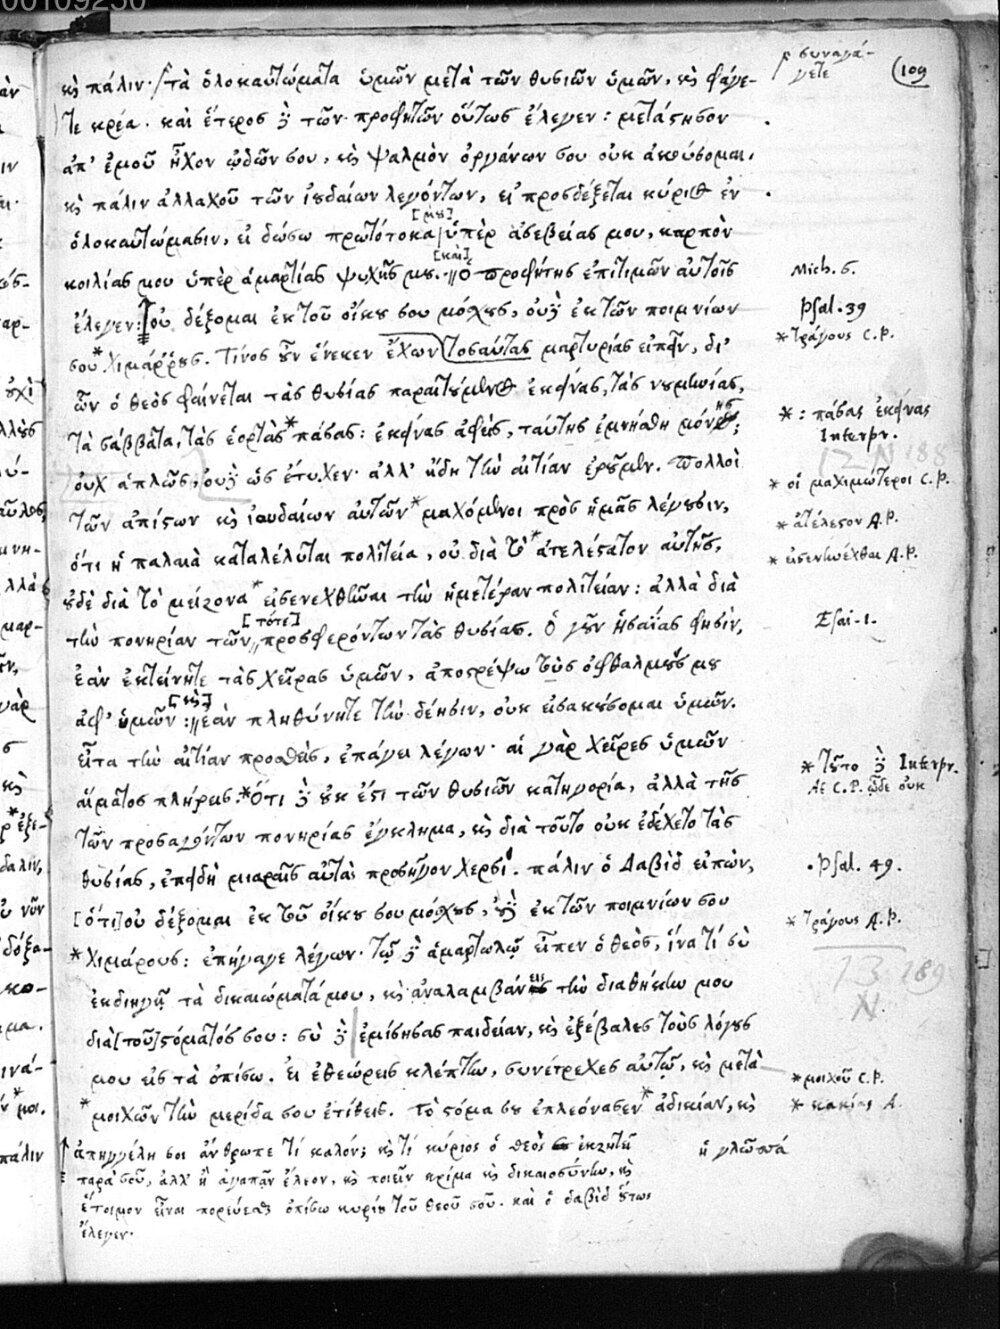 00109250
(109
κὶ πάλιν· τὰ ὁλοκαυτώματα ὑμῶν μετὰ τῶν θυσιῶν ὑμῶν, κὶ φάγε-
συναγά-
γετε
τε κρέα. καὶ ἕτερος δὲ τῶν προφητῶν οὕτως ἔλεγεν: μετάστησον
ἀπ' ἐμοῦ ἦχον ᾠδῶν σου, κὶ ψαλμὸν ὀργάνων σου οὐκ ἀκούσομαι.
κὶ πάλιν ἀλλαχοῦ τῶν ἰουδαίων λεγόντων, εἰ προσδέξεται κύριος ἐν
[μου]
ὁλοκαυτώμασιν, εἰ δώσω πρωτότοκα ὑπὲρ ἀσεβείας μου, καρπὸν
[καὶ]
κοιλίας μου ὑπὲρ ἁμαρτίας ψυχῆς μου. ὁ προφήτης ἐπιτιμῶν αὐτοῖς
Mich. 6.
ἔλεγεν: οὐ δέξομαι ἐκ τοῦ οἴκου σου μόσχους, οὐδὲ ἐκ τῶν ποιμνίων
Psal. 39
σου * χιμάρρους. τίνος οὖν ἕνεκεν ἔχων τοσαύτας μαρτυρίας εἰπεῖν, δι'
* τράγους C.P.
ὧν ὁ θεὸς φαίνεται τὰς θυσίας παραιτούμενος ἐκείνας, τὰς νουμηνίας,
τὰ σάββατα, τὰς ἑορτὰς * πάσας: ἐκείνας ἀφεὶς, ταύτης ἐμνήσθη μόνης;
* : πάσας ἐκείνας
Interpr.
οὐχ ἁπλῶς, οὐδὲ ὡς ἔτυχεν· ἀλλ' ἤδη τὴν αἰτίαν ἐροῦμεν. πολλοὶ
12 N 188
τῶν ἀπίστων κὶ ἰουδαίων αὐτῶν * μαχόμενοι πρὸς ἡμᾶς λέγουσιν,
* οἱ μαχιμώτεροι C.P.
ὅτι ἡ παλαιὰ καταλέλυται πολιτεία, οὐ διὰ τὸ * ἀτελέστατον αὐτῆς,
* ἀτέλεστον A.P.
οὐδὲ διὰ τὸ μείζονα * εἰσενεχθῆναι τὴν ἡμετέραν πολιτείαν: ἀλλὰ διὰ
* εἰσενηνέχθαι A.P.
[τότε]
τὴν πονηρίαν τῶν προσφερόντων τὰς θυσίας. ὁ γοῦν ἡσαΐας φησὶν,
Esai. 1.
ἐὰν ἐκτείνητε τὰς χεῖρας ὑμῶν, ἀποστρέψω τοὺς ὀφθαλμούς μου
[κὶ]
ἀφ' ὑμῶν: ἐὰν πληθύνητε τὴν δέησιν, οὐκ εἰσακούσομαι ὑμῶν.
εἶτα τὴν αἰτίαν προσθεὶς, ἐπάγει λέγων· αἱ γὰρ χεῖρες ὑμῶν
αἵματος πλήρεις. * ὅτι δὲ οὐκ ἔστι τῶν θυσιῶν κατηγορία, ἀλλὰ τῆς
* τοῦτο δὲ Interpr.
At C.P. ὧδε οὐκ
τῶν προσαγόντων πονηρίας ἔγκλημα, κὶ διὰ τοῦτο οὐκ ἐδέχετο τὰς
θυσίας, ἐπειδὴ μιαραῖς αὐτὰς προσῆγον χερσί. πάλιν ὁ Δαβὶδ εἰπὼν,
Psal. 49.
[ὅτι] οὐ δέξομαι ἐκ τοῦ οἴκου σου μόσχους, οὐδὲ ἐκ τῶν ποιμνίων σου
* τράγους A.P.
* χιμάρους: ἐπήγαγε λέγων· τῷ δὲ ἁμαρτωλῷ εἶπεν ὁ θεὸς, ἵνα τί σὺ
13 189
N
ἐκδιηγῇ τὰ δικαιώματά μου, κὶ ἀναλαμβάνεις τὴν διαθήκην μου
διὰ [τοῦ] στόματός σου: σὺ δὲ ἐμίσησας παιδείαν, κὶ ἐξέβαλες τοὺς λόγους
μου εἰς τὰ ὀπίσω. εἰ ἐθεώρεις κλέπτην, συνέτρεχες αὐτῷ, κὶ μετὰ
* μοιχοῦ C.P.
* μοιχῶν τὴν μερίδα σου ἐτίθεις. τὸ στόμα σου ἐπλεόνασεν * ἀδικίαν, κὶ
* κακίας A.
ἡ γλῶσσά
ἀπηγγέλη σοι ἄνθρωπε τί καλόν; κὶ τί κύριος ὁ θεὸς ἐκζητεῖ
παρὰ σοῦ, ἀλλ' ἢ ἀγαπᾶν ἔλεον, κὶ ποιεῖν κρίμα κὶ δικαιοσύνην, κὶ
ἕτοιμον εἶναι πορεύεσθαι ὀπίσω κυρίου τοῦ θεοῦ σοῦ. καὶ ὁ δαβὶδ οὕτως
ἔλεγεν.